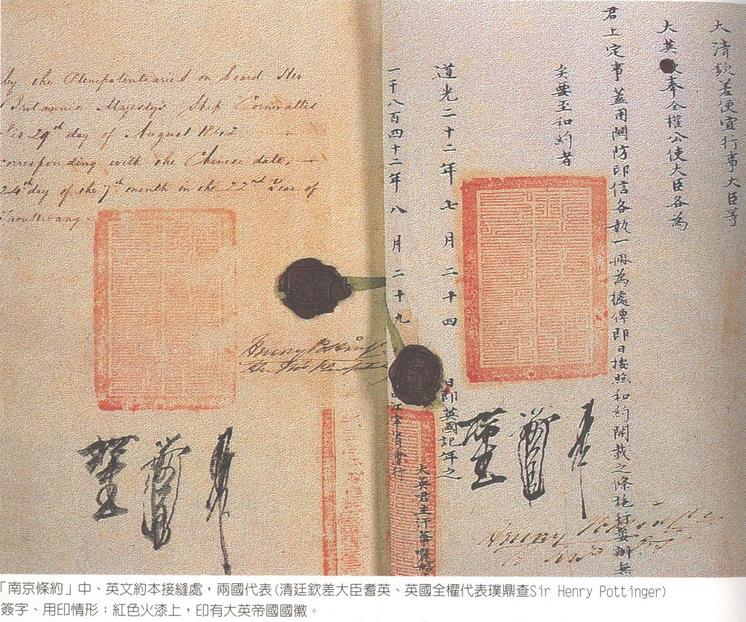 by the Plenipotentaries on board Her
Britannic Majesty's Ship Cornwallis
this 29th day of August 1842
corresponding with the Chinese date,
24th day of the 7th month in the 22nd Year of
Taoukwang.
Henry Pottinger
大清欽差便宜行事大臣等
大英奉全權公使大臣各為
君上定事蓋用關防印信各執一冊為據俾即日按照和約開載之條施行妥辦無
矣要至和約者
道光二十二年七月二十四日即英國記年之
一千八百四十二年八月二十九
省會行
大英君主汗華
Henry Pottinger
「南京條約」中、英文約本接縫處，兩國代表(清廷欽差大臣耆英、英國全權代表璞鼎查Sir Henry Pottinger)
簽字、用印情形；紅色火漆上，印有大英帝國國徽。